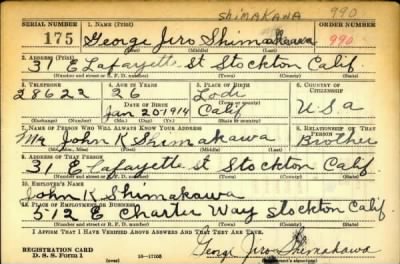 Shimakawa 990
SERIAL NUMBER 1. NAME (Print) ORDER NUMBER
175 George Jiro Shimakawa 990
(First) (Middle) (Last)
2. ADDRESS (Print)
31 E Lafayette St Stockton Calif
(Number and street or R. F. D. number) (Town) (County) (State)
3. TELEPHONE 4. AGE IN YEARS 5. PLACE OF BIRTH 6. COUNTRY OF CITIZENSHIP
28622 26 Lodi
DATE OF BIRTH
Jan 20 1914 Calif USA
7. NAME OF PERSON WHO WILL ALWAYS KNOW YOUR ADDRESS 8. RELATIONSHIP OF THAT PERSON
Mr John K Shimakawa Brother
9. ADDRESS OF THAT PERSON
31 E Lafayette St Stockton Calif
(Number and street or R. F. D. number) (Town) (County) (State)
10. EMPLOYER'S NAME
John K. Shimakawa
11. PLACE OF EMPLOYMENT OR BUSINESS
512 E Charter Way Stockton Calif
(Number and street or R. F. D. number) (Town) (County) (State)
I AFFIRM THAT I HAVE VERIFIED ABOVE ANSWERS AND THAT THEY ARE TRUE.
REGISTRATION CARD
D. S. S. Form 1 (over) 16—17105 George Jiro Shimakawa